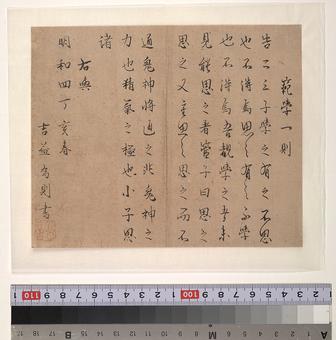 學一則
告二三子學之有之不思
也不得焉思之有之不學
也不得焉吾觀學之者未
見能思之者管子曰思之
思之又重思之思之而不
通鬼神將通之非鬼神之
力也精氣之極也小子思
諸
右
明和四丁亥春
吉益為則書
110 100
B M A